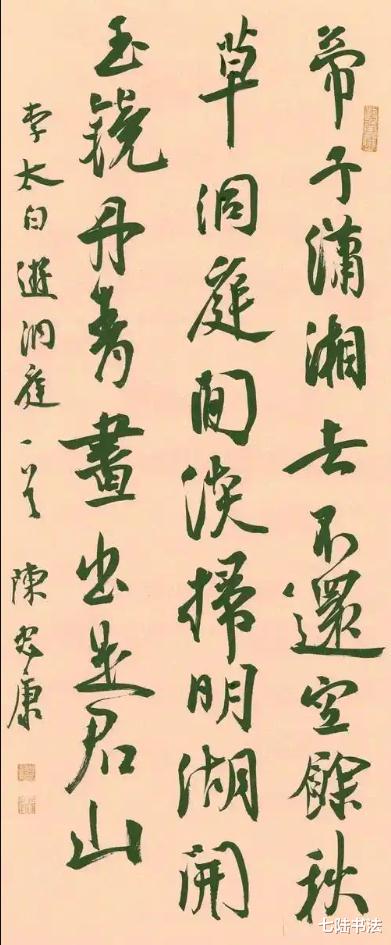 帝子瀟湘去不還空餘秋
草洞庭間淡掃明湖開
玉鏡丹青畫出是君山
李太白遊洞庭一首 陳忠康
七陆书法